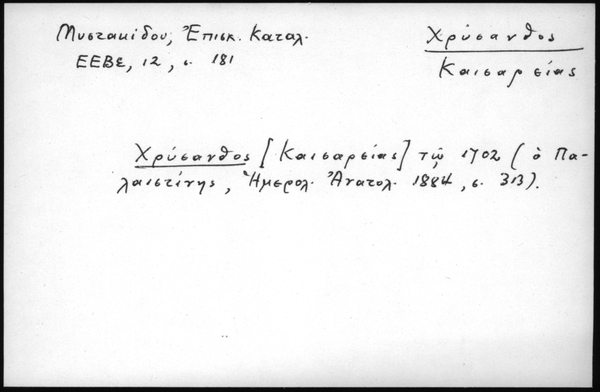 Μυστακίδου, Ἐπισκ. Καταλ.
ΕΕΒΣ, 12, ς. 181
Χρύσανθος
Καισαρείας
Χρύσανθος [Καισαρείας] τῷ 1702 (ὁ Πα-
λαιστίνης, Ἡμερολ. Ἀνατολ. 1884, ς. 313).